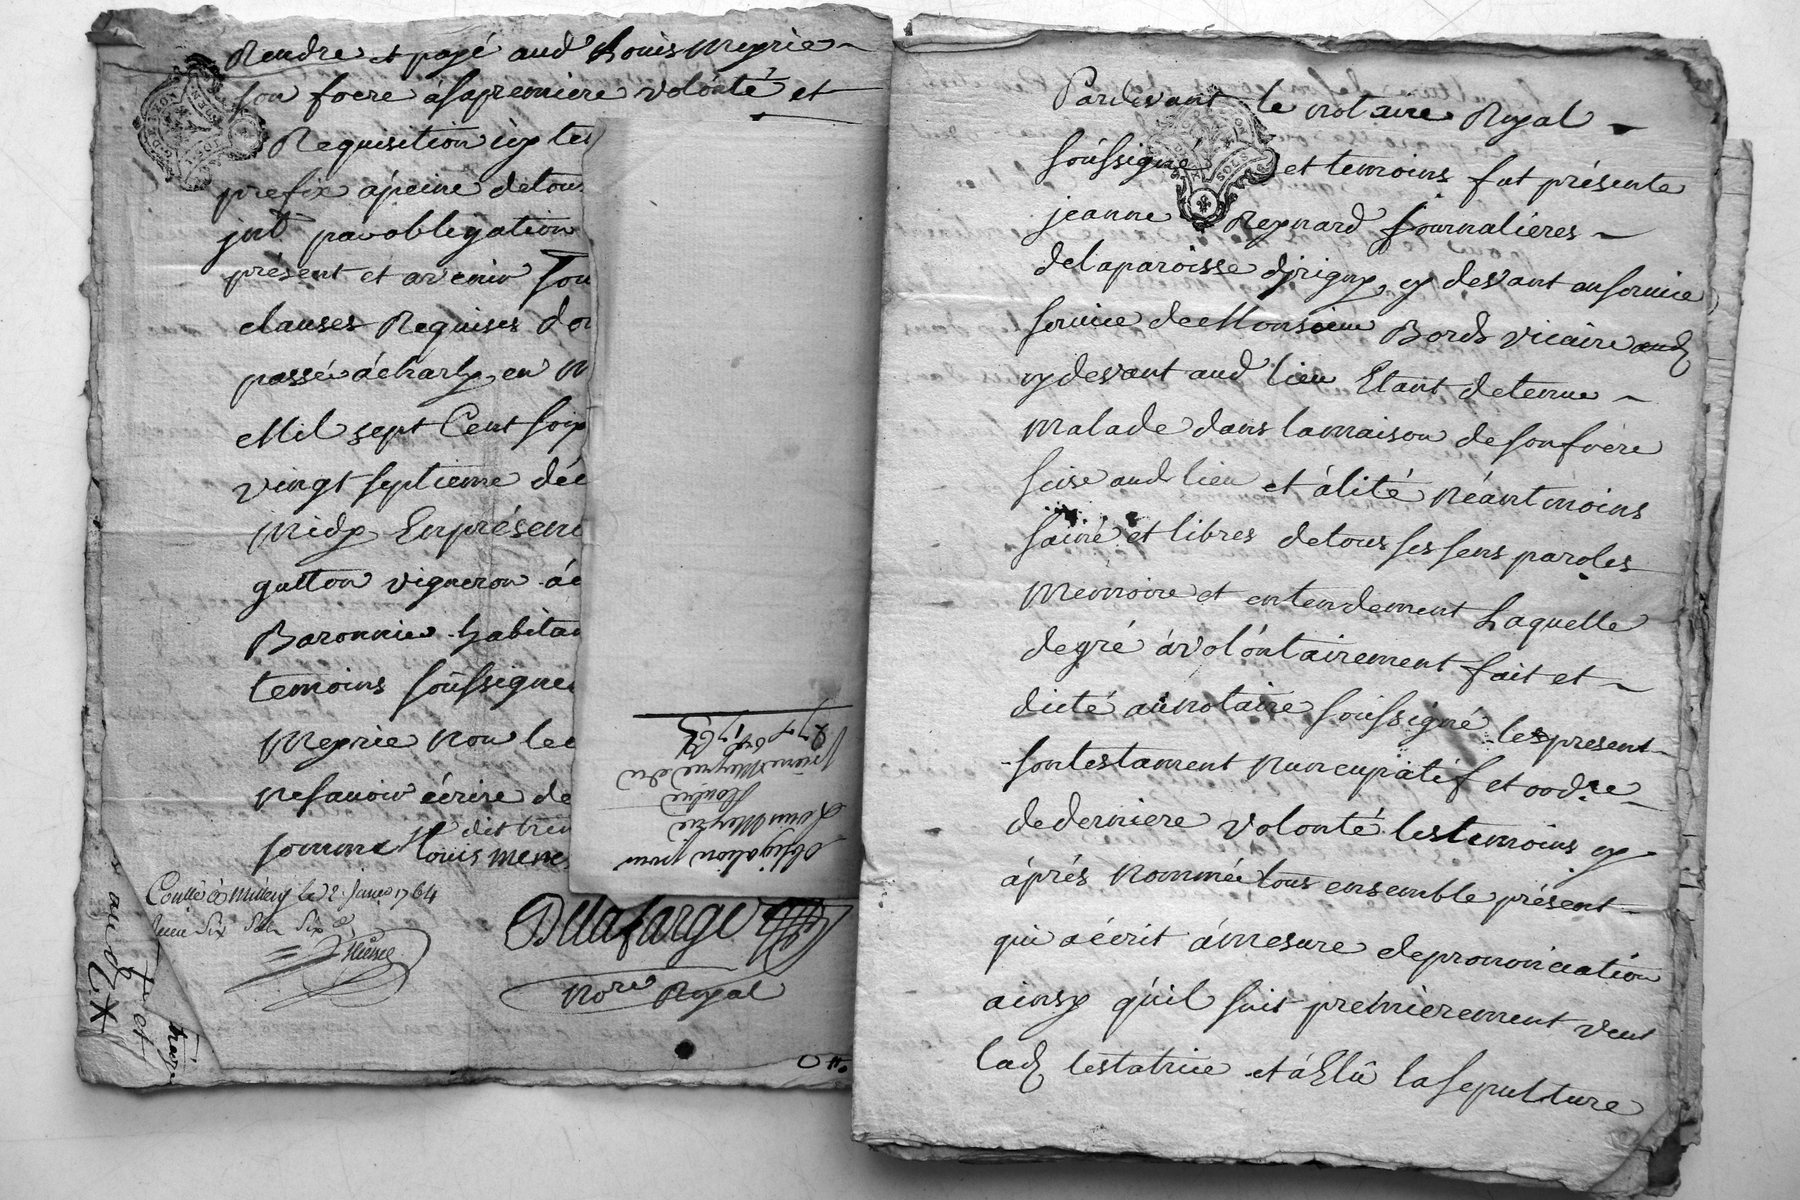 Rendre et payé aud Louis Meyrie
son frere á sa premiere volónté et
Requisition icy
prefix á peine de tous
par obligation
présent et avenir
clauses Requises
passé á charly en
Mil sept Cent
vingt septieme
Midy En présen
gutton vigneron
Baronnie habitan
temoins soussignes
Meyrie non le
ne savoir écrire de
somme Louis
1764
Dellafarge
Nore Royal
et
Obligation pour
Louis Meyrie
Contre
pierre Meyrie du
27 xbre 1763
Par devant le notaire Royal
soussigné et temoins fut présente
jeanne Reynard journalières
de la paroisse d'jrigny, cy devant au servire
service de Monsieur Bord vicaire aud
cy devant aud lieu Etant detenue
malade dans la maison de son frère
sise aud lieu et álité néantmoins
saine et libres de tous ses sens paroles
memoire et entendement Laquelle
de gré á volóntairement fait et
dicté au notaire soussigné les present
son testament nuncupatif et ordre
de derniere volonté les temoins cy
áprés nommé tous ensemble présent
qui á écrit á mesure de prononciation
ainsy qu'il suit premierement veut
lad testatrice et á Elû la sepulture